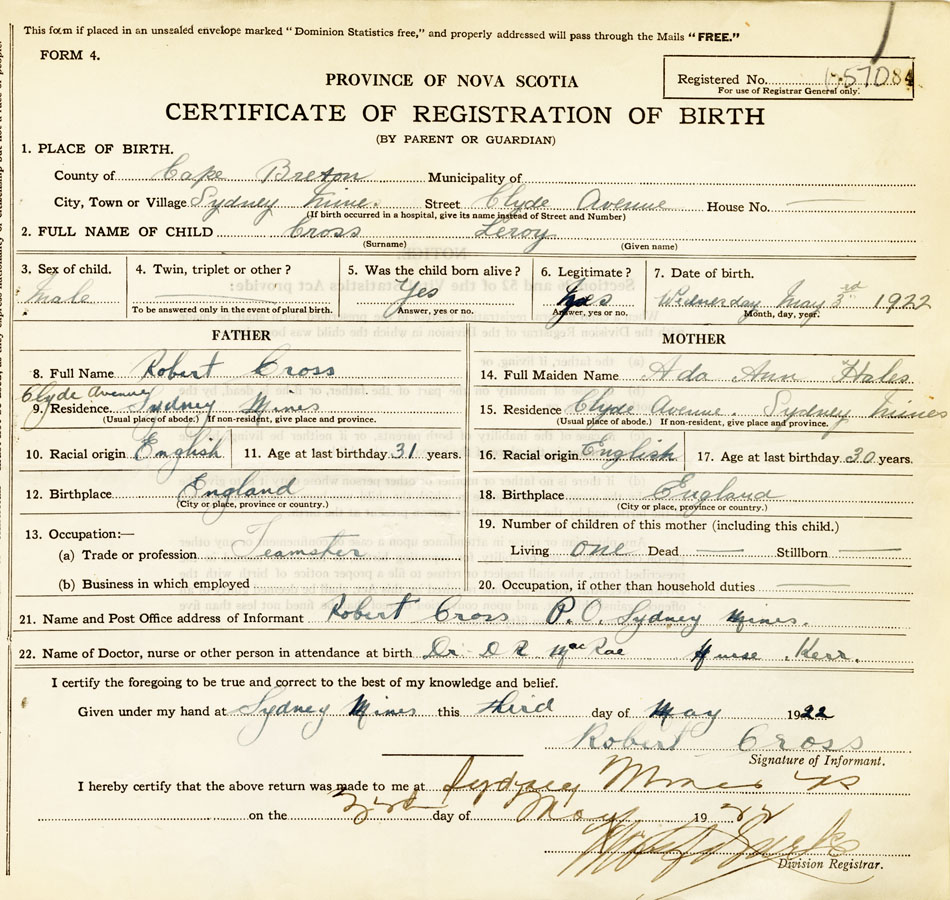 This form if placed in an unsealed envelope marked "Dominion Statistics free," and properly addressed will pass through the Mails "FREE."
FORM 4.
PROVINCE OF NOVA SCOTIA
Registered No. 57084
For use of Registrar General only.
CERTIFICATE OF REGISTRATION OF BIRTH
(BY PARENT OR GUARDIAN)
1. PLACE OF BIRTH.
County of Cape Breton Municipality of
City, Town or Village Sydney Mines. Street Clyde Avenue House No.
(If birth occurred in a hospital, give its name instead of Street and Number)
2. FULL NAME OF CHILD Cross Leroy
(Surname) (Given name)
3. Sex of child. 4. Twin, triplet or other? 5. Was the child born alive? 6. Legitimate? 7. Date of birth.
Male Yes Yes Wednesday May 3rd 1922
To be answered only in the event of plural birth. Answer, yes or no. Answer, yes or no. Month, day, year.
FATHER MOTHER
8. Full Name Robert Cross
14. Full Maiden Name Ada Ann Hales
Clyde Avenue
9. Residence. Sydney Mines
(Usual place of abode.) If non-resident, give place and province.
15. Residence Clyde Avenue. Sydney Mines
(Usual place of abode.) If non-resident, give place and province.
10. Racial origin English 11. Age at last birthday 31 years.
16. Racial origin English 17. Age at last birthday 30 years.
12. Birthplace England
(City or place, province or country.)
18. Birthplace England
(City or place, province or country.)
13. Occupation:—
(a) Trade or profession Teamster
(b) Business in which employed
19. Number of children of this mother (including this child.)
Living one Dead — Stillborn —
20. Occupation, if other than household duties
21. Name and Post Office address of Informant Robert Cross P.O. Sydney Mines.
22. Name of Doctor, nurse or other person in attendance at birth Dr. D R MacRae Nurse Kerr.
I certify the foregoing to be true and correct to the best of my knowledge and belief.
Given under my hand at Sydney Mines this third day of May 1922
Robert Cross
Signature of Informant.
I hereby certify that the above return was made to me at Sydney Mines NS
on the day of May 1922
Division Registrar.